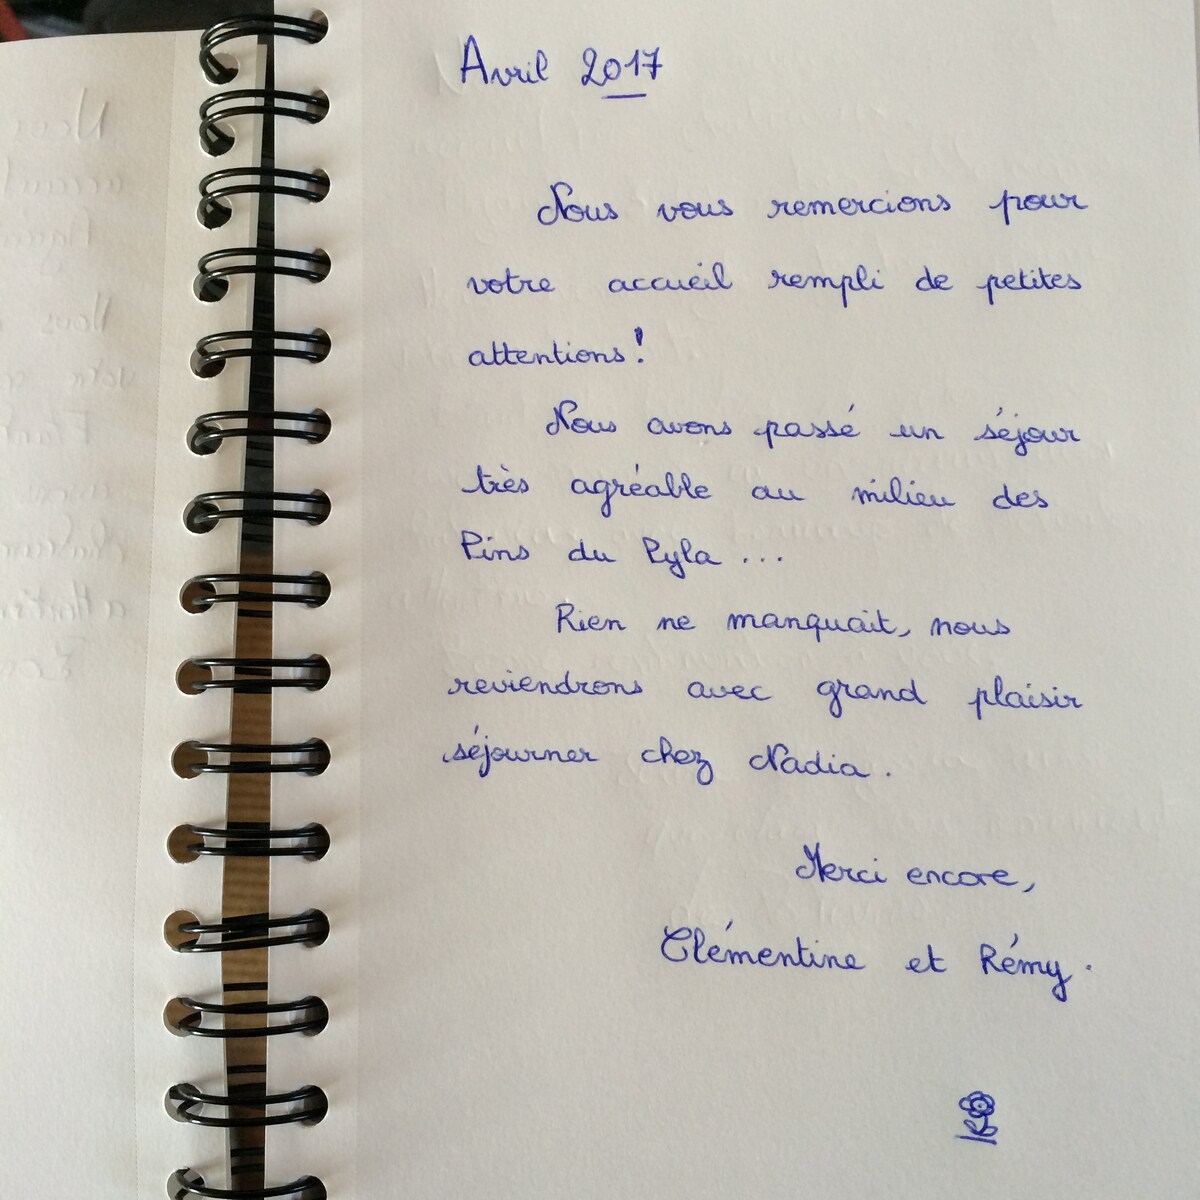 Avril 2017
Nous vous remercions pour
votre accueil rempli de petites
attentions!
Nous avons passé un séjour
très agréable au milieu des
Pins du Pyla ...
Rien ne manquait, nous
reviendrons avec grand plaisir
séjourner chez Nadia.
Merci encore,
Clémentine et Rémy.